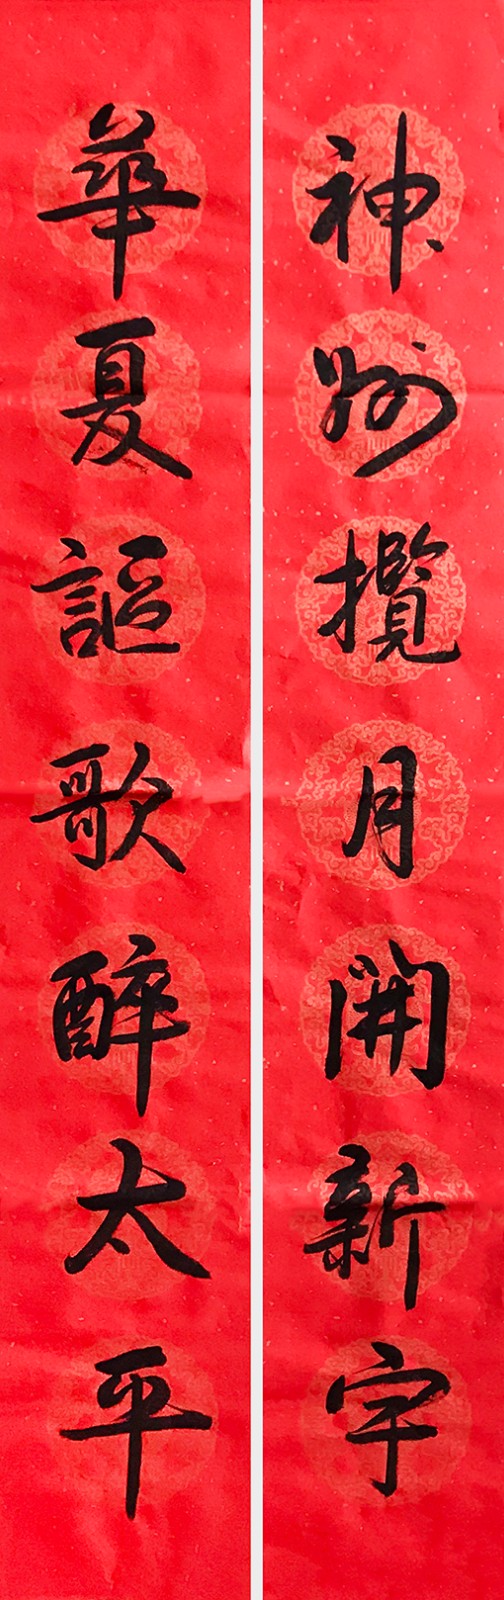 神州攬月開新宇
華夏謳歌醉太平